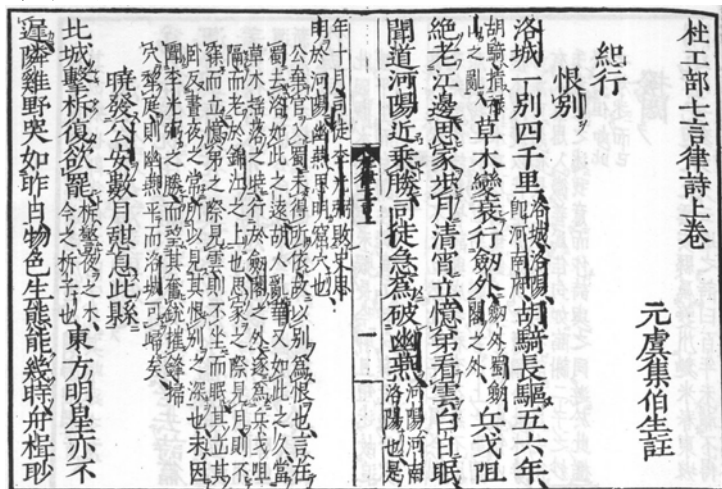 杜工部七言律詩上卷
元虞集伯生註
紀行
恨別
洛城一別四千里洛城洛陽即河南府胡騎長驅五六年
胡騎指祿山之亂草木變衰行劍外劍外蜀劍閣之外兵戈阻
絶老江邊思家歩月清宵立憶弟看雲白日眠
聞道河陽近乗勝司徒急爲破幽燕河陽河南洛陽也是
一
年十月司徒李光弼敗史思
明於河陽幽燕思明窟穴也
公棄官入蜀未得所依故以別爲恨也言在
蜀去洛如此之遠胡人亂華又如此之久當
草木揺落之時行於劍閣之外遂爲兵戈阻
隔而老於錦江之上也思家之際見月則不
寐而立憶弟之際見雲則不坐而眠其立其
臥反晝夜之常所以見其恨別之深也末因
聞李光弼之勝而望其奮銃摧鋒掃
穴犂庭則幽燕平而洛城可歸矣
暁發公安數月憩息此縣
北城撃柝復欲罷柝警夜之木今之柝子也東方明星亦不
遅隣雞野哭如昨日物色生態能幾時舟楫眇